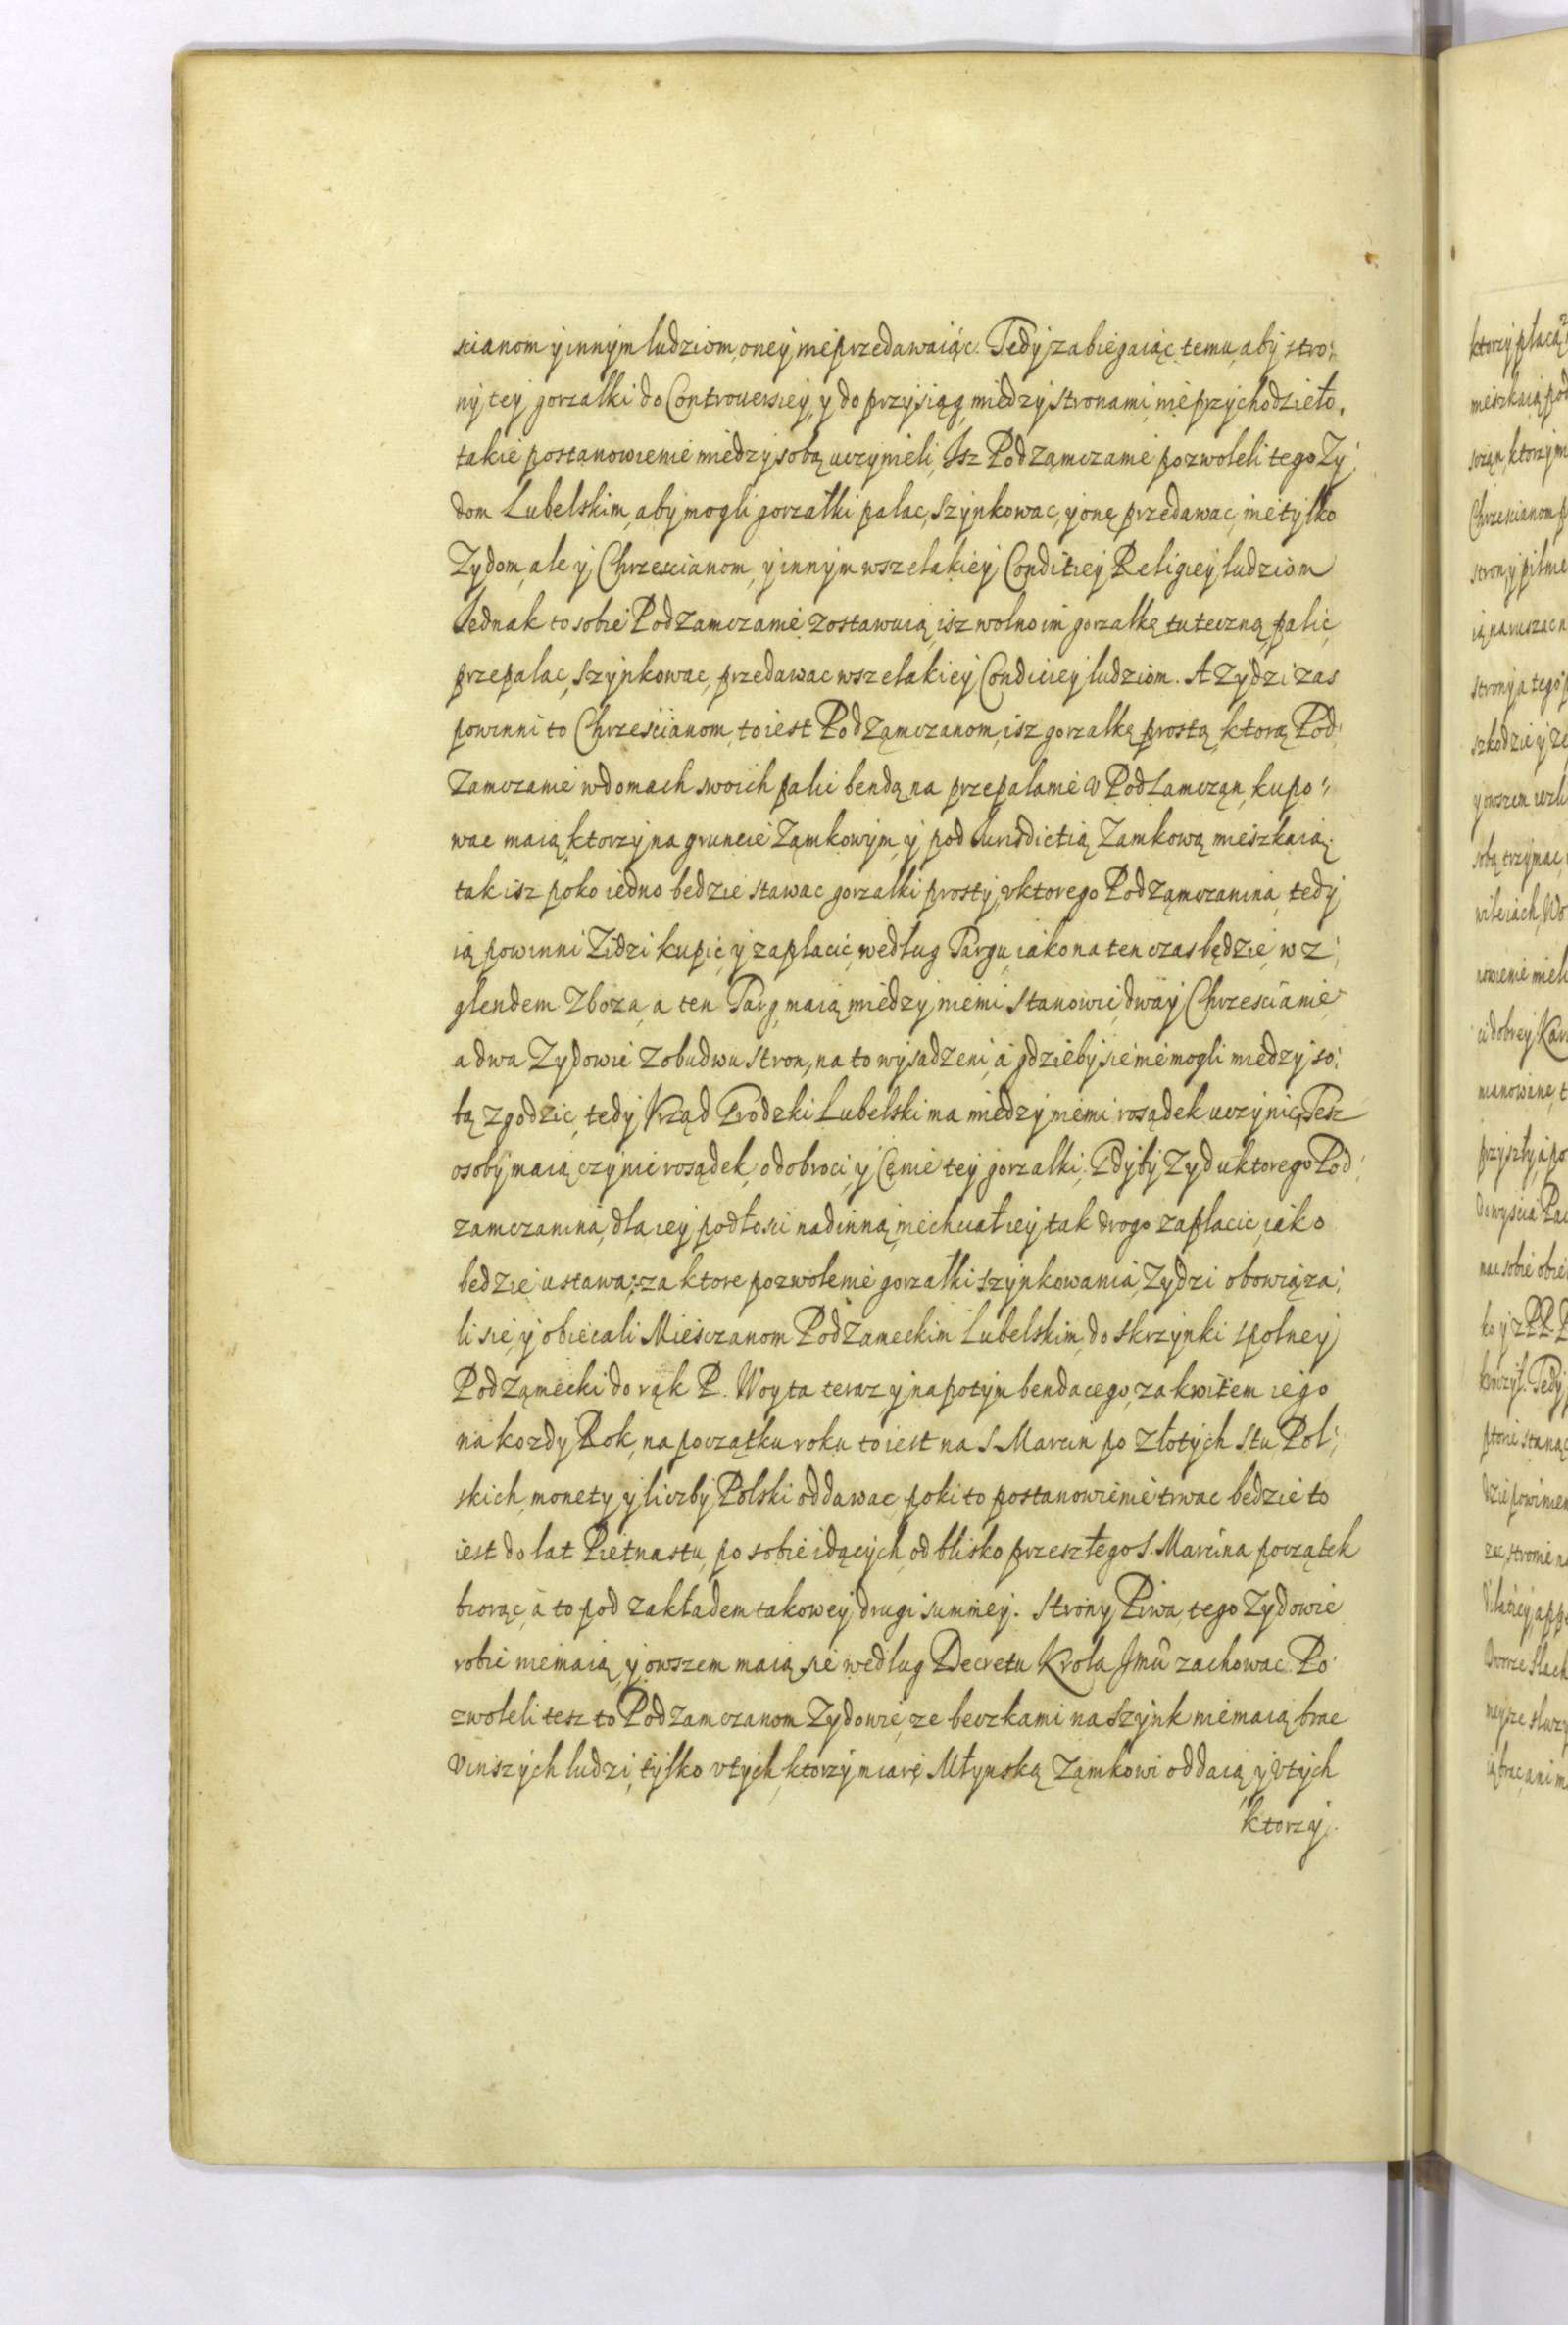 scianom y innym ludziom, oney nieprzedawaiąc. Tedy zabiegaiąc temu, aby stro:
ny tey gorzałki do Controuersiey, y do przysiąg, miedzy stronami nieprzychodzieło,
takie postanowienie miedzy sobą uczynieli, Isz Podzamczanie pozwoleli tego Zy:
dom Lubelskim, aby mogli gorzałki palac, szynkowac, y onę przedawac, nietylko
Zydom, ale y Chrzescianom, y innym wszelakiey Conditiey Religiey ludziom
Iednak to sobie Podzamczanie zostawuią, isz wolno im gorzałkę tuteczną, palic,
przepalac, szynkowac, przedawac wszelakiey Condiciey ludziom. A Zydzi zas
powinni to Chrzescianom, to iest Podzamczanom, isz gorzałkę prostą, ktorą Pod:
zamczanie w domach swoich palic bendą na przepalanie v Podzamczan, kupo:
wac maią, ktorzy na gruncie Zamkowym, y pod Iurisdictią Zamkową mieszkaią.
tak isz poko iedno bedzie stawac gorzałki prosty, v ktorego Podzamczanina, tedy
ią powinni Zidzi kupic, y zapłacic, według Targu, iako na ten czas będzie, w z:
glendem zboza, a ten Targ maią miedzy niemi stanowic, dway Chrzescianie
a dwa Zydowie z obudwu stron, na to wysadzeni, a gdzieby sie nie mogli miedzy so:
bą zgodzic, tedy Vrząd Grodzki Lubelski ma miedzy niemi rosądek uczynic, Tesz
osoby maią czynic rosądek, o dobroci, y Cenie tey gorzałki, Gdyby Zyd u ktorego Pod:
zamczanina, dla iey podłosci nad inną, niechciał iey tak drogo zapłacic, iako
bedzie ustawa: za ktore pozwolenie gorzałki szynkowania, Zydzi obowiąza:
li sie, y obiecali Miesczanom Podzameckim Lubelskim, do skrzynki spolney
Podzamecki do rąk P. Woyta teraz y napotym bendacego, za kwitem iego
na kozdy Rok, na początku roku to iest na S. Marcin po złotych stu Pol:
skich, monety y liczby Polski oddawac, poki to postanowienie trwac bedzie to
iest do lat Pietnastu, po sobie idących, od blisko przeszłego S. Marcina początek
biorąc, a to pod zakładem takowey drugi summey. Strony Piwa, tego Zydowie
robic niemaią, y owszem maią sie według Decretu Krola Jmci zachowac. Po:
zwoleli tesz to Podzamczanom Zydowie, ze beczkami na szynk niemaią brac
v inszych ludzi, tylko v tych, ktorzy miarę Młynską Zamkowi oddaią, y v tych
ktorzy